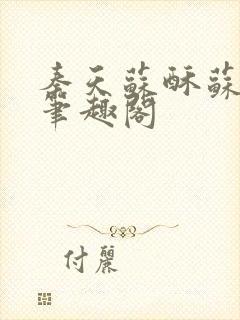 秦天蘇酥蘇
筆趣閣
付麗